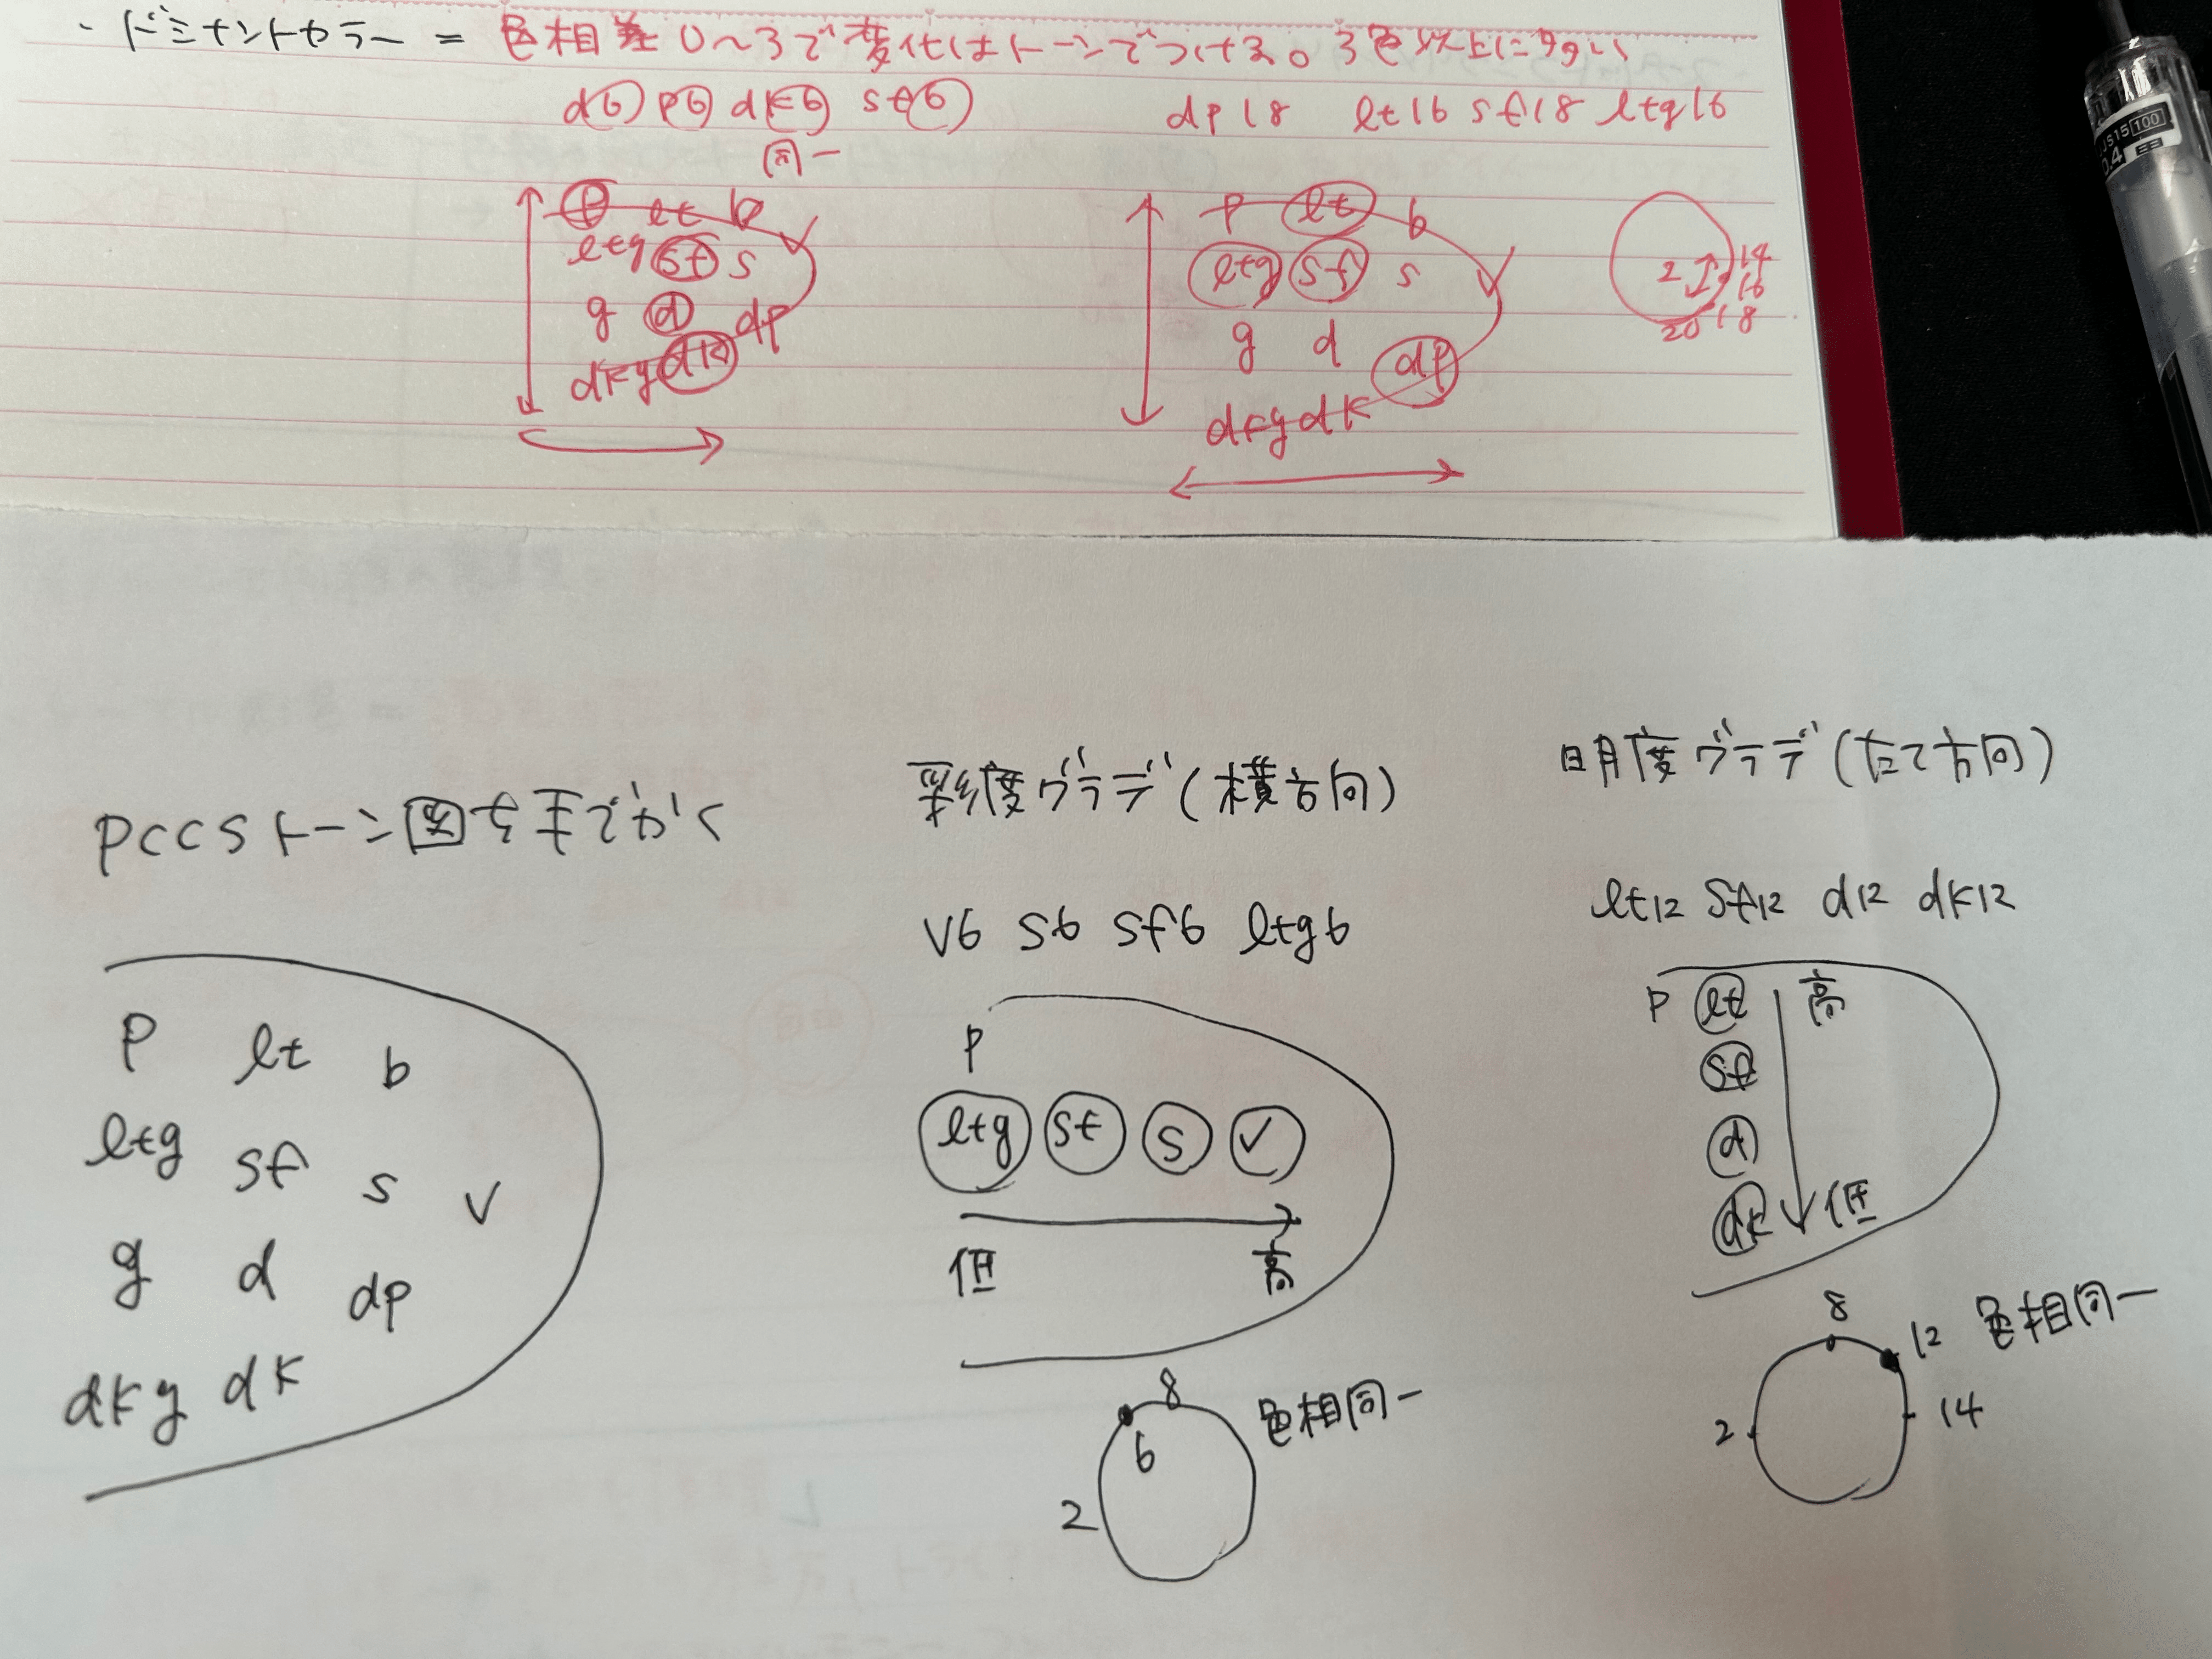 ・ドミナントカラー = 色相差0〜3で変化はトーンでつける。3色以上に多い
d6 p6 dk6 sf6
同一
dp18 lt16 sf18 ltg16
p lt b
v
ltg sf s
g d dp
dkg dk
p lt b
v
ltg sf s
g d dp
dkg dk
2 14
16
20 18
JS15 100
0.4
PCCSトーン図を手でかく
p lt b
ltg sf s v
g d dp
dkg dk
彩度グラデ(横方向)
v6 s6 sf6 ltg6
p
ltg sf s v
低 高
8
6
2
色相同一
明度グラデ(たて方向)
lt12 sf12 d12 dk12
p lt 高
sf
d
dk 低
8
12 色相同一
2 14